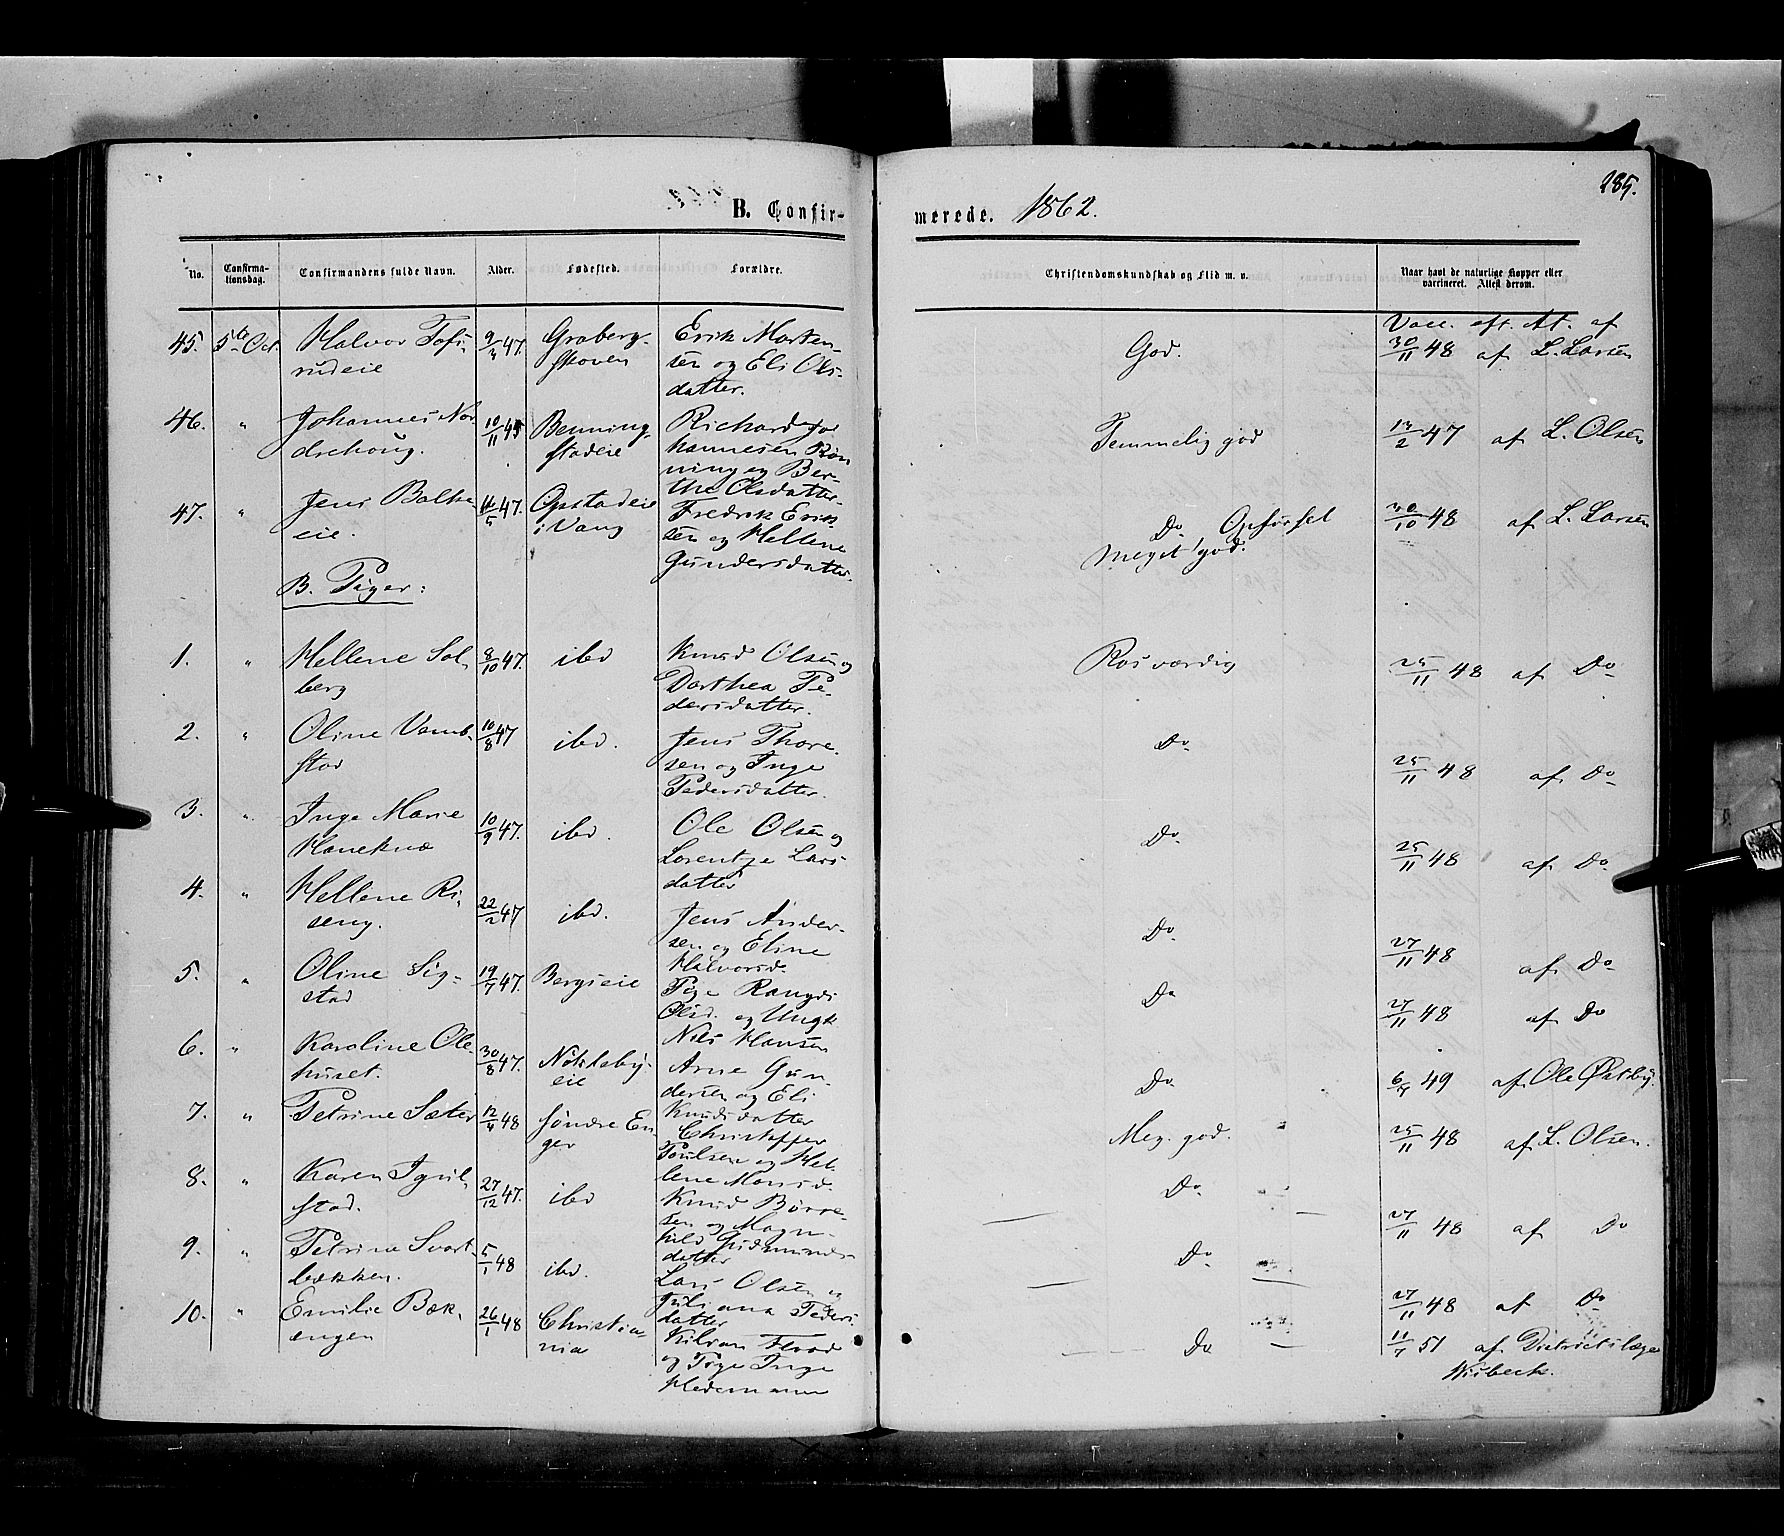 285.
B. Confir-
merede. 1862.
No.
Confirma-
tionsdag.
Confirmandens fulde Navn.
Alder.
Fødested.
Forældre.
Christendomskundskab og Flid m. v.
Naar havt de naturlige Kopper eller
vaccineret. Attest derom.
45. 5te Oct. Halvor Tofs- 9/3 47. Graberg- Erik Morten-
rudeie skoven sen og Eli Ols-
datter.
God.
Vacc. eft. At. af
30/11 48 af L. Larsen
46. " Johannes No- 10/11 45 Benning- Richard Jo-
drehoug. stadeie hannesen Røn
ning og Ber-
the Olsdatter.
Temmelig god
2 47 af L. Olsen
47. " Jens Balke- 5 47. Opstadeie Fredrik Erik-
eie. i Vang sen og Hellene
Gundersdatter.
Do Opførsel
meget god.
30/10 48 af L. Larsen
B. Piger:
1. " Hellene Sol- 8/10 47. ibd Knud Olsen og
berg Dorthea Pe-
dersdatter.
Rosværdig
25/11 48 af Do
2. " Oline Vamb- 10/8 47 ibd. Jens Thore-
stad sen og Inge
Pedersdatter.
Do
25/11 48 af Do
3. " Inge Marie 10/9 47. ibd. Ole Olsen og
Haneknæ Lorentze Lars-
datter
Do
25/11 48 af Do
4. " Hellene Ri- 22/2 47 ibd. Jens Ander-
seng. sen og Eline
Halvorsd.
Do
27/11 48 af Do
5. " Oline Sig- 19/7 47. Bergseie Pige Rangdi
stad Olsd. og Ungk
Nils Hansen
Do
27/11 48 af Do
6. " Karoline Ole- 30/8 47. Nøkleby- Arne Gun-
huset. eie dersen og Eli
Knudsdatter
Do
49 af Ole Østby.
7. " Petrine Sæter 12/4 48 Søndre En- Christoffer
ger Poulsen og Hel-
lene Monsd.
Meg. god.
25/11 48 af L. Olsen.
8. " Karen Igril- 27/12 47. ibd Knud Børre-
stad. sen og Magn-
hild Gudmunds-
datter
Do
27/11 48 af Do
9. " Petrine Svart- 5/1 48 ibd. Lars Olsen og
bækken. Juliana Peders-
datter
Do
27/11 48 af Do
10. " Emilie Bæk- 26/1 48 Christia- Kilian Flood
engen nia og Pige Inge
Hedemann
Do
11/7 51 af Districtslæge
Nisbeck.